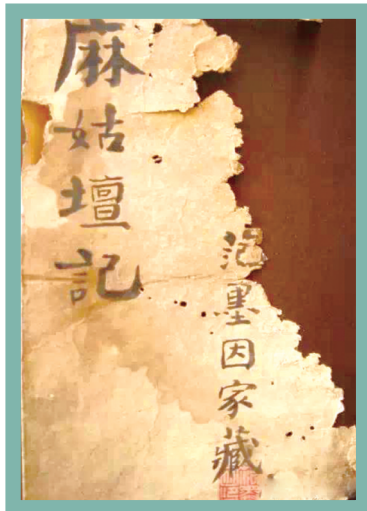 麻姑壇記
范墨因家藏